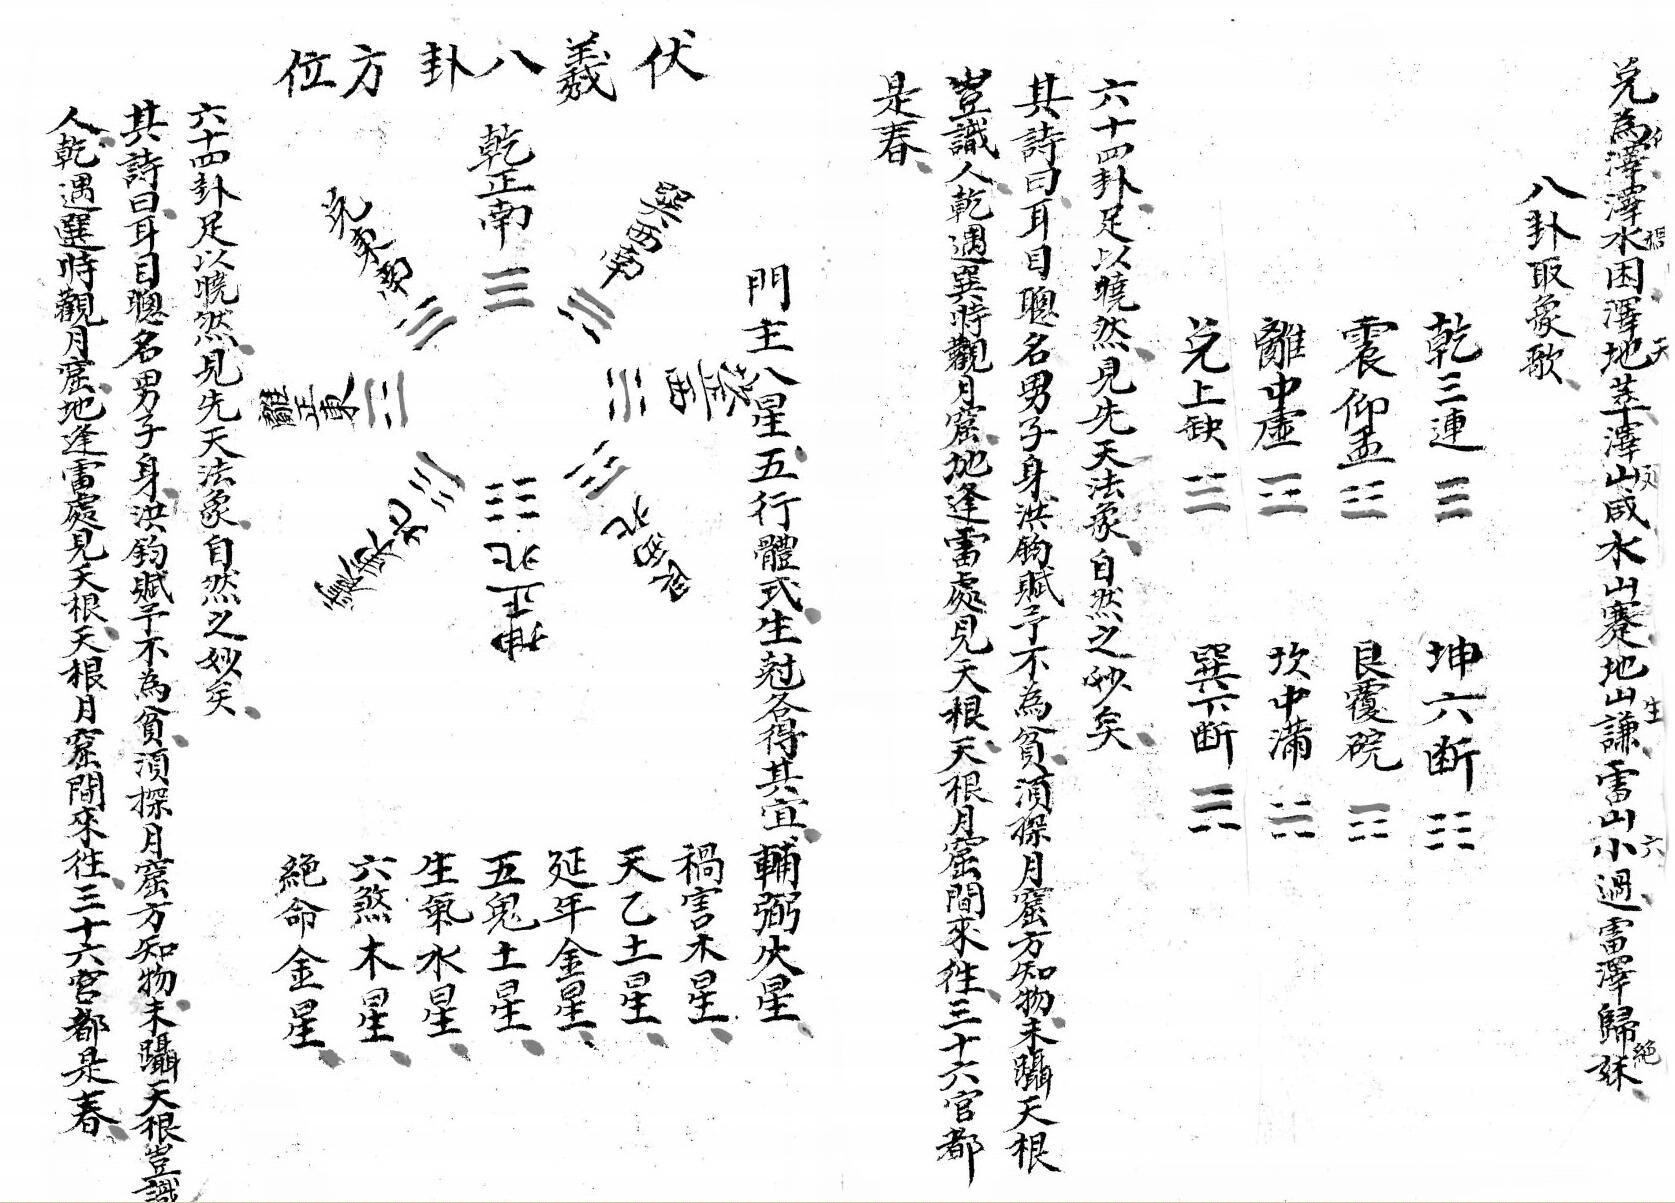 兌為澤澤水困澤地萃澤山咸水山蹇地山謙雷山小過雷澤歸妹
天
生
六
絕
八卦取象歌
乾三連☰
坤六断☷
震仰盂☳
艮覆碗☶
離中虛☲
坎中滿☵
兌上缺☱
巽下断☴
六十四卦足以曉然見先天法象自然之妙矣
其詩曰耳目聰名男子身洪鈞賦予不為貧湏探月窟方知物未躡天根
豈識人乾遇巽時觀月窟地逢雷處見天根天根月窟間來往三十六宮都
是春
門主八星五行體式生尅各得其宜輔弼火星
禍害木星
天乙土星
延年金星
五鬼土星
生氣水星
六煞木星
絕命金星
伏羲八卦方位
乾正南☰
巽西南☴
坎正西☵
艮西北☶
坤正北☷
震東北☳
離正東☲
兌東南☱
六十四卦足以曉然見先天法象自然之妙矣
其詩曰耳目聰名男子身洪鈞賦予不為貧湏探月窟方知物未躡天根豈識
人乾遇巽時觀月窟地逢雷處見天根天根月窟間來往三十六宮都是春